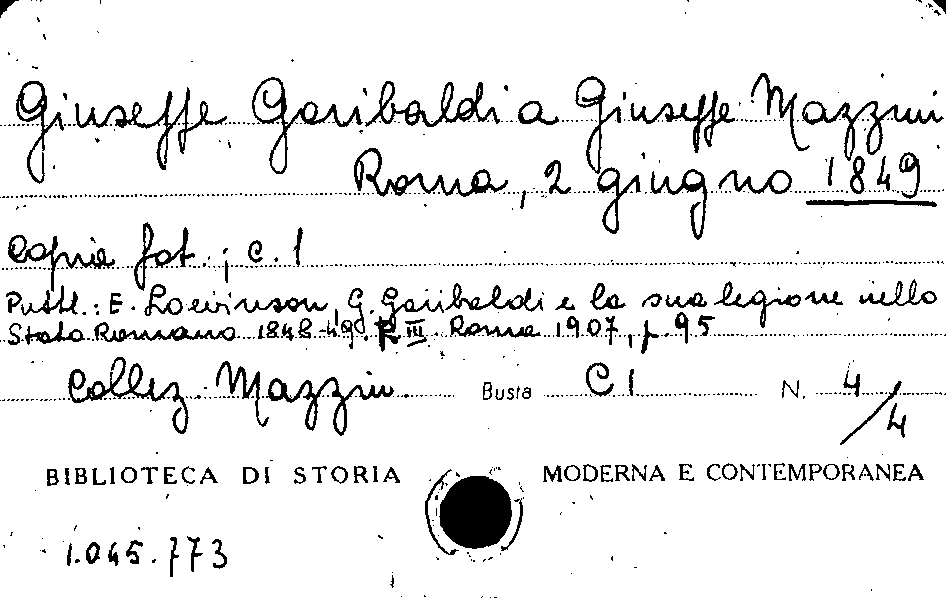 Giuseppe Garibaldi a Giuseppe Mazzini
Roma, 2 giugno 1849
Copia fot.; c. 1
Pubbl.: E. Loevinson, G. Garibaldi e la sua legione nello
Stato Romano 1848-49. P. III. Roma 1907, p. 95
Collez. Mazzini. Busta C 1 N. 4/4
BIBLIOTECA DI STORIA MODERNA E CONTEMPORANEA
1.045.773